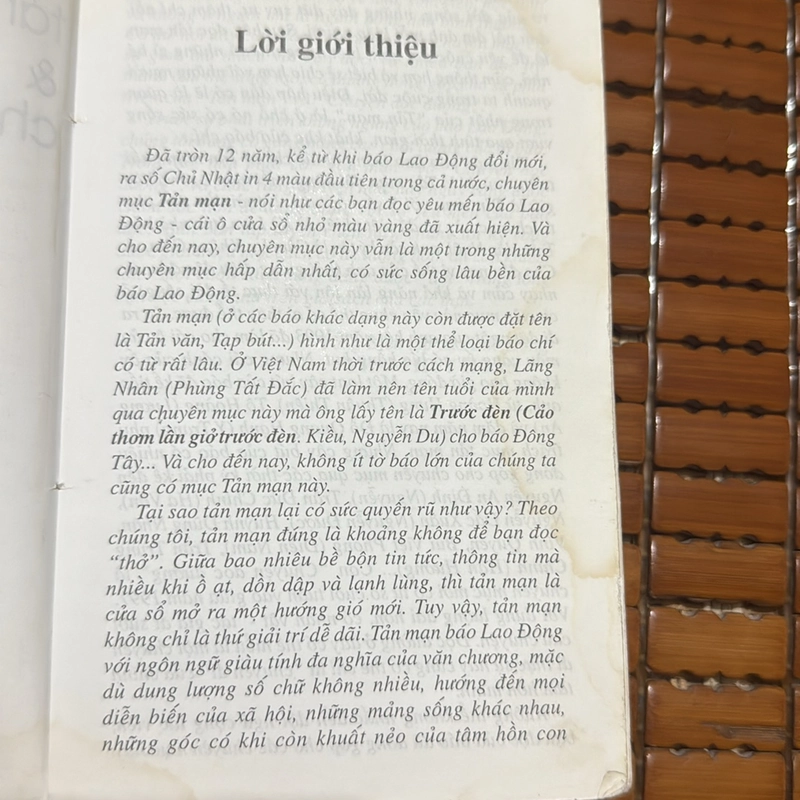 Lời giới thiệu
Đã tròn 12 năm, kể từ khi báo Lao Động đổi mới,
ra số Chủ Nhật in 4 màu đầu tiên trong cả nước, chuyên
mục Tản mạn - nói như các bạn đọc yêu mến báo Lao
Động - cái ô cửa sổ nhỏ màu vàng đã xuất hiện. Và
cho đến nay, chuyên mục này vẫn là một trong những
chuyên mục hấp dẫn nhất, có sức sống lâu bền của
báo Lao Động.
Tản mạn (ở các báo khác dạng này còn được đặt tên
là Tản văn, Tạp bút...) hình như là một thể loại báo chí
có từ rất lâu. Ở Việt Nam thời trước cách mạng, Lãng
Nhân (Phùng Tất Đắc) đã làm nên tên tuổi của mình
qua chuyên mục này mà ông lấy tên là Trước đèn (Cảo
thơm lần giở trước đèn. Kiều, Nguyễn Du) cho báo Đông
Tây... Và cho đến nay, không ít tờ báo lớn của chúng ta
cũng có mục Tản mạn này.
Tại sao tản mạn lại có sức quyến rũ như vậy? Theo
chúng tôi, tản mạn đúng là khoảng không để bạn đọc
“thở”. Giữa bao nhiêu bề bộn tin tức, thông tin mà
nhiều khi ồ ạt, dồn dập và lạnh lùng, thì tản mạn là
cửa sổ mở ra một hướng gió mới. Tuy vậy, tản mạn
không chỉ là thứ giải trí dễ dãi. Tản mạn báo Lao Động
với ngôn ngữ giàu tính đa nghĩa của văn chương, mặc
dù dung lượng số chữ không nhiều, hướng đến mọi
diễn biến của xã hội, những mảng sống khác nhau,
những góc có khi còn khuất nẻo của tâm hồn con